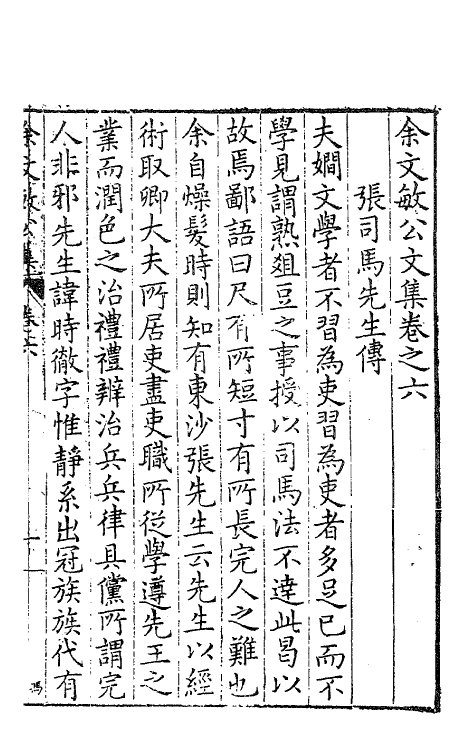 余文敏公文集卷之六
張司馬先生傳
夫嫺文學者不習為吏習為吏者多足已而不
學見謂熟爼豆之事授以司馬法不達此曷以
故焉鄙語曰尺有所短寸有所長完人之難也
余自燥髮時則知有東沙張先生云先生以經
術取卿大夫所居吏盡吏職所從學遵先王之
業而潤色之治禮禮辯治兵兵律具儻所謂完
人非邪先生諱時徹字惟靜系出冠族族代有
余文敏公集 卷六
一
馮